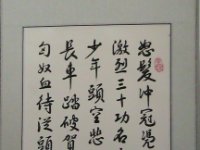 怒髮冲冠凴
激烈三十功名
少年頭空悲
長車踏破賀
匈奴血待從頭